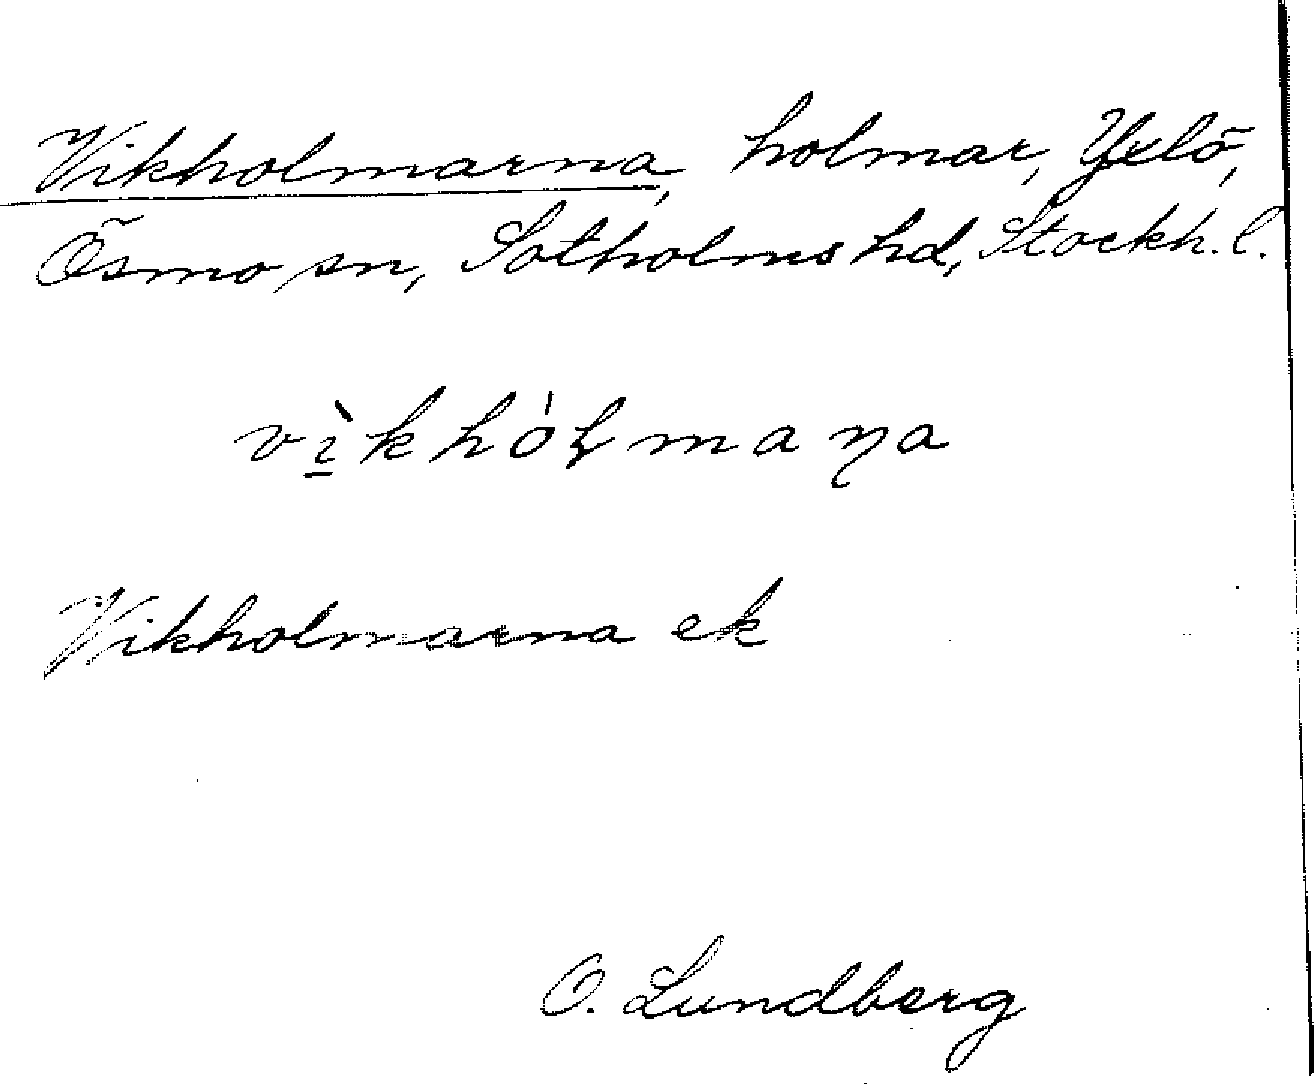 Vikholmarna, holmar, Yxlö,
Ösmo sn, Sotholms hd, Stockh. l.
vı̲̀khóɫmaꞃa
Vikholmarna ek
O. Lundberg